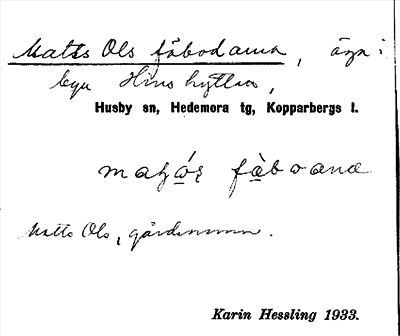 Matts Ols fäbodarna, äga i
byn Hinshyttan,
Husby sn, Hedemora tg, Kopparbergs l.
Matts Ols, gårdsnamn.
Karin Hessling 1933.